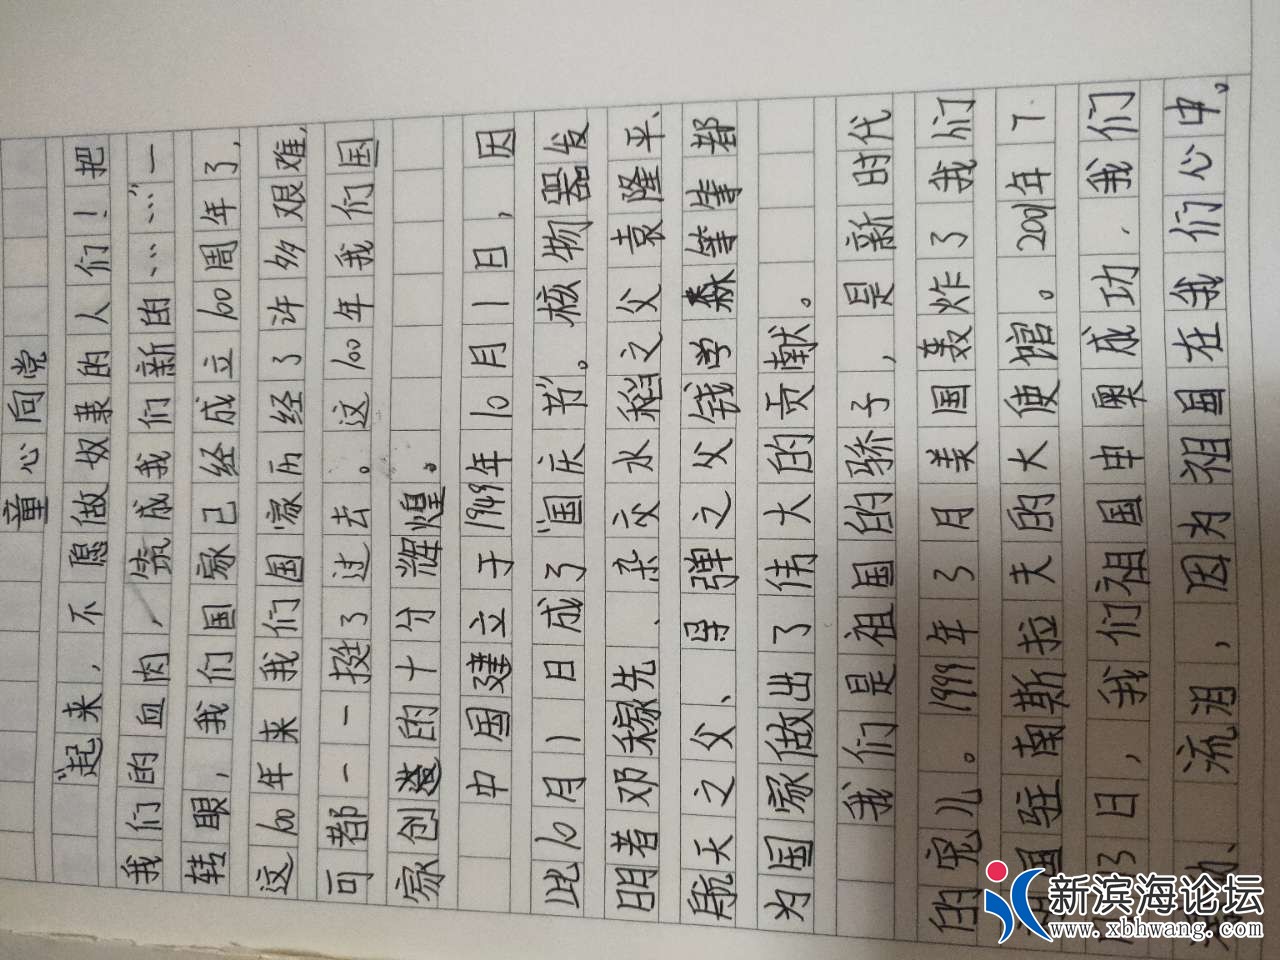 童心向党
“起来，不愿做奴隶的人们！把
我们的血肉，筑成我们新的……”一
转眼，我们国家已经成立100周年了，
这100年来我们国家历经了许多艰难，
可都一一挺了过去。这100年我们国
家创造的十分辉煌。
中国建立于1949年10月1日，因
此10月1日成了“国庆节。核物器发
明者邓稼先、杂交水稻之父袁隆平、
航天之父、导弹之父钱学森等等都
为国家做出了伟大的贡献。
我们是祖国的骄子，是新时代
的宠儿。1999年3月美国轰炸了我们
国驻南斯拉夫的大使馆。2001年7
月13日，我们祖国申奥成功，我们
流泪，因为祖国在我们心中。
新滨海论坛
www.xbhwang.com